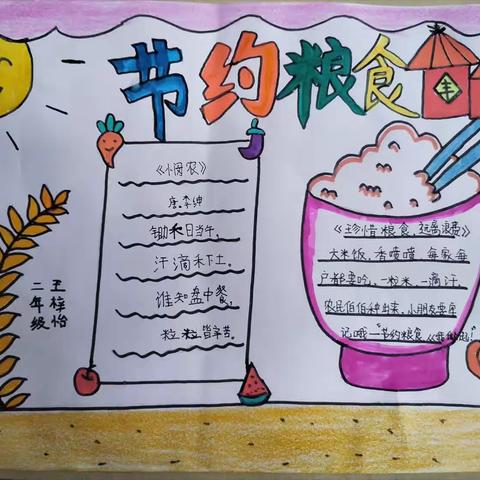 节约粮食
丰
《悯农》
唐.李绅
锄禾日当午,
汗滴禾下土。
谁知盘中餐,
粒粒皆辛苦。
《珍惜粮食,远离浪费》
大米饭,香喷喷,每家每
户都要吃,一粒米,一滴汗,
农民伯伯种出来,小朋友要牢
记哦一"节约粮食从我做起!"
二年级
王梓怡